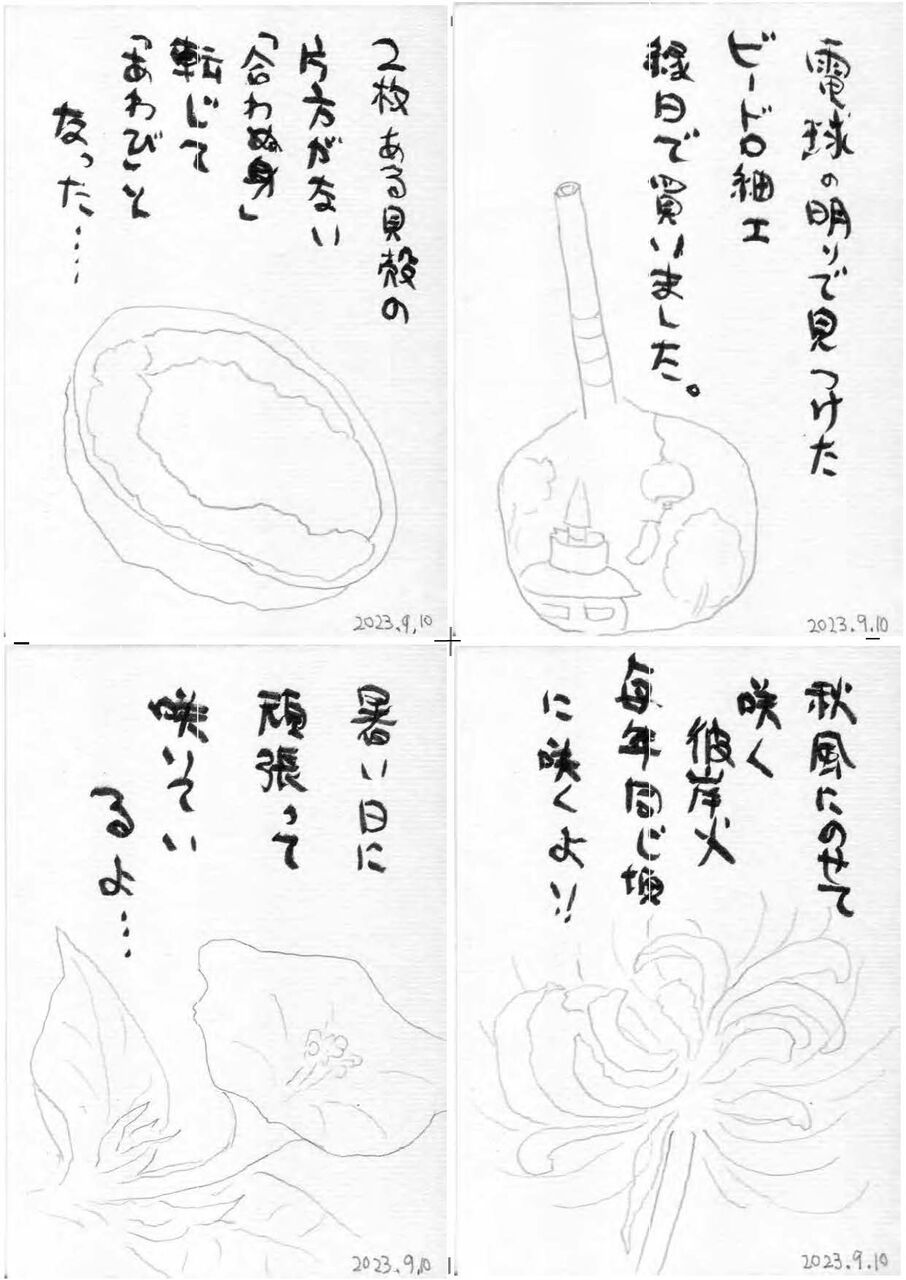 2枚ある貝殻の
片方がない
「合わぬ身」
転じて
「あわび」と
なった‥‥
2023.9.10
電球の明りで見つけた
ビードロ細工
縁日で買いました。
2023.9.10
暑い日に
頑張って
咲いてい
るよ…
2023.9.10
秋風にのせて
咲く
彼岸火
毎年同じ場
に咲くよ!!
2023.9.10